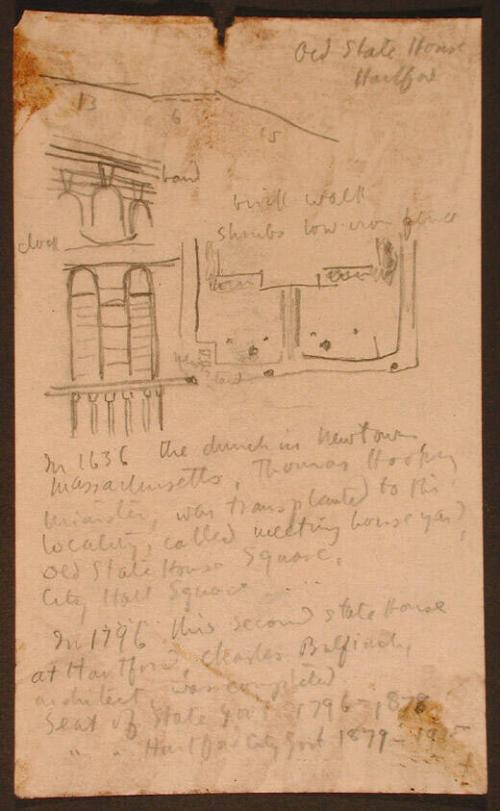 Old State House
Hartford
13
6
15
band
brick walk
shrubs low iron fence
clock
In 1636 the church in Newtown
Massachusetts, Thomas Hooker,
minister, was transplanted to this
locality, called meeting house yard,
Old State House Square,
City Hall Square
In 1796 this second state house
at Hartford, Charles Bulfinch,
architect, was completed
Seat of State Govt 1796-1878
" " Hartford City Govt 1879-1915